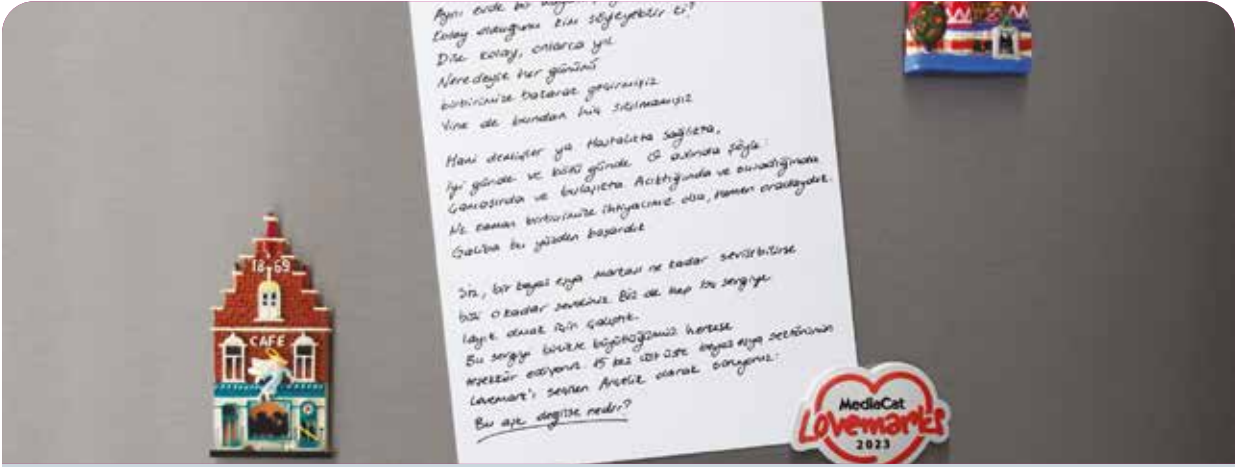 Aynı evde bir
Kolay olduğunu kim söyleyebilir ki?
Dile kolay, onlarca yıl
Neredeyse her gününü
birbirimize bakarak geçirmişiz
Yine de bundan hiç sıkılmamışız
Hani demişler ya Hastalıkta sağlıkta,
İyi günde ve kötü günde O aslında şöyle:
Çamaşırda ve bulaşıkta Acıktığında ve susadığında
Ne zaman birbirimize ihtiyacımız olsa, hemen oradaydık.
Galiba bu yüzden başardık
Siz, bir beyaz eşya markası ne kadar sevilebilirse
bizi o kadar sevdiniz. Biz de hep bu sevgiye
layık olmak için çalıştık.
Bu sevgiyi birlikte büyüttüğümüz herkese
teşekkür ediyoruz. 15 kez üst üste beyaz eşya sektörünün
Lovemark'ı seçilen Arçelik olarak soruyoruz:
Bu aşk değilse nedir?
1869
CAFE
MediaCat
Lovemarks
2023